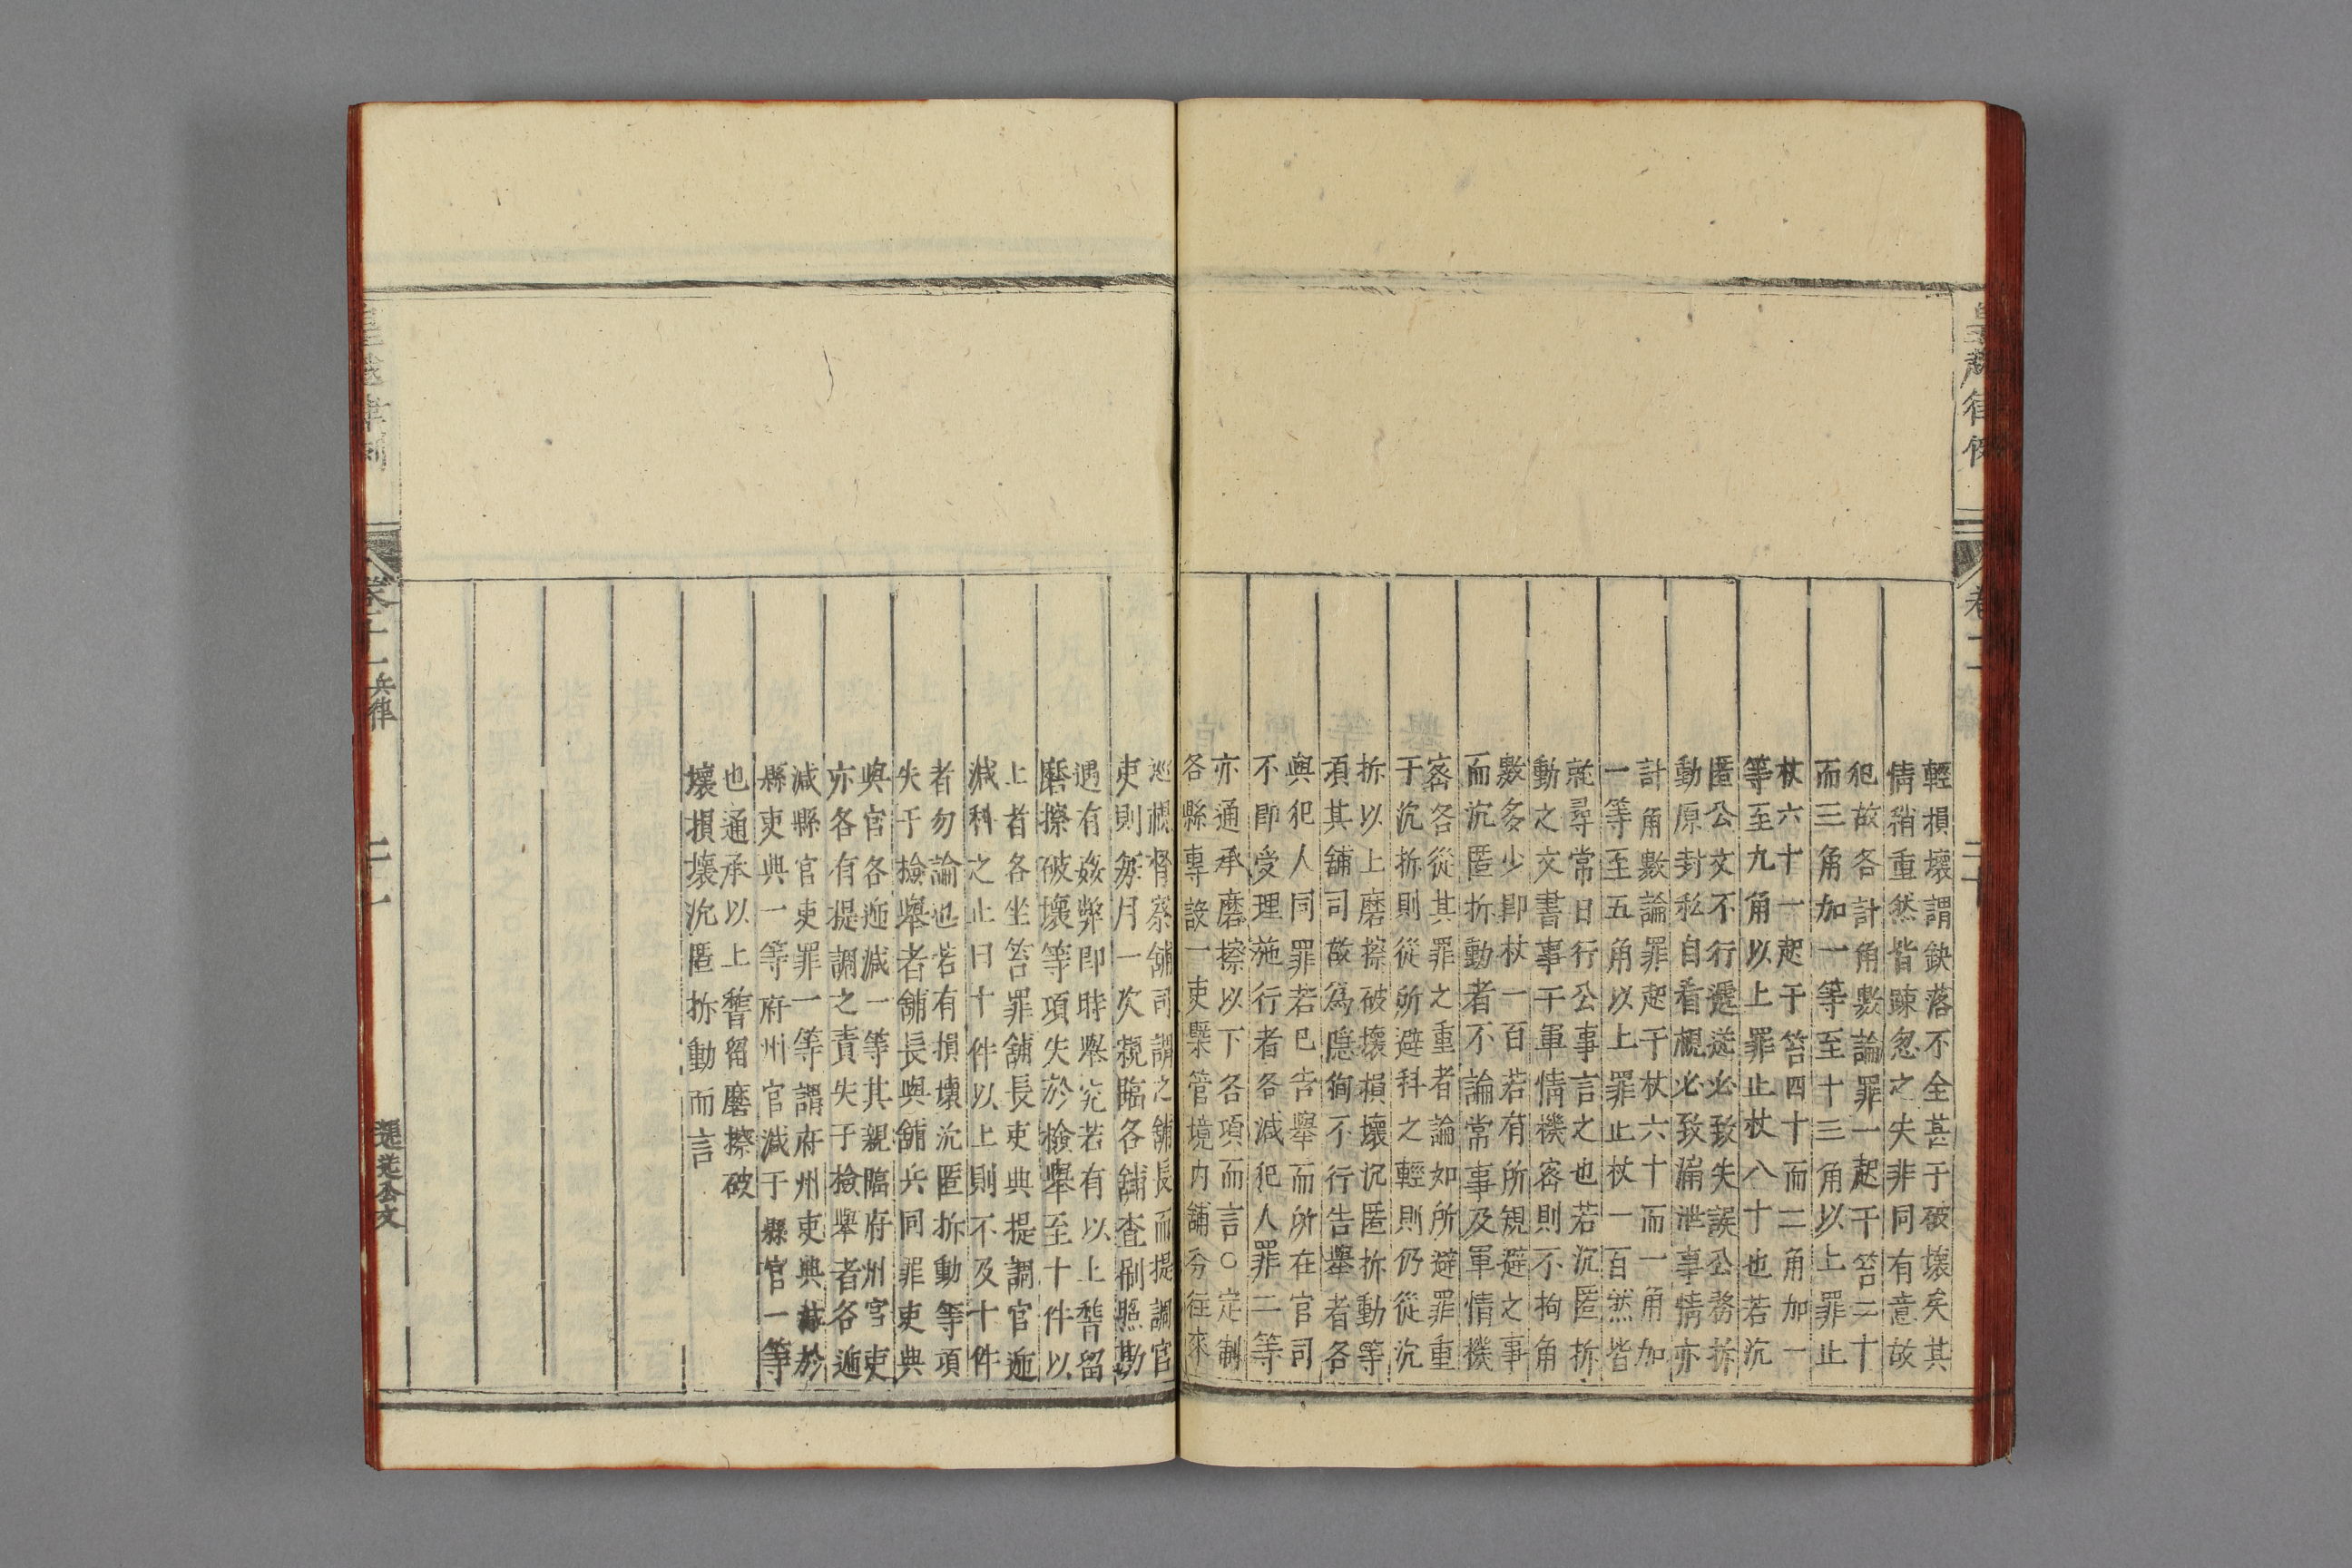 皇越律例
卷十一
二十
輕損壞謂缺落不全甚于破壞矣其
情稍重然皆踈忽之失非同有意故
犯故各計角數論罪一起于笞二十
而三角加一等至十三角以上罪止
杖六十一起于笞四十而二角加一
等至九角以上罪止杖八十也若沉
匿公文不行遞送必致失誤公務拆
動原封私自看覷必致漏泄事情亦
計角數論罪起于杖六十而一角加
一等至五角以上罪止杖一百然皆
就尋常日行公事言之也若沉匿拆
動之文書事干軍情機密則不拘角
數多少即杖一百若有所規避之事
而沉匿拆動者不論常事及軍情機
密各從其罪之重者論如所避罪重
于沉拆則從所避科之輕則仍從沉
拆以上磨擦破壞損壞沉匿拆動等
項其舖司故為隱狥不行告舉者各
與犯人同罪若巳告舉而所在官司
不即受理施行者各減犯人罪二等
亦通承磨擦以下各項而言○定制
各縣專設一吏槩管境内舖分往來
巡視督察舖司謂之舖長而提調官
吏則每月一次親臨各舖查刷照勘
遇有姦弊即時舉究若有以上稽留
磨擦破壞等項失於檢舉至十件以
上者各坐笞罪舖長吏典提調官遞
減科之止曰十件以上則不及十件
者勿論也若有損壞沉匿拆動等項
失于撿舉者舖長與舖兵同罪吏典
與官各遞減一等其親臨府州官吏
亦各有提調之責失于檢舉者各遞
減縣官吏罪一等謂府州吏典減於
縣吏典一等府州官減于縣官一等
也通承以上稽留磨擦破
壞損壞沉匿拆動而言
皇越律例
卷十一
兵律
二十一
遞送公文